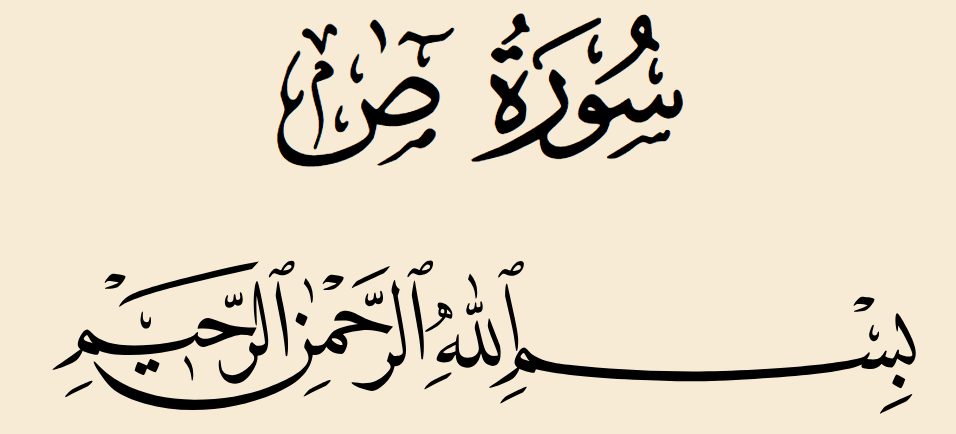 سُورَةُ صٓ
بِسْمِ ٱللَّهِ ٱلرَّحْمَٰنِ ٱلرَّحِيمِ